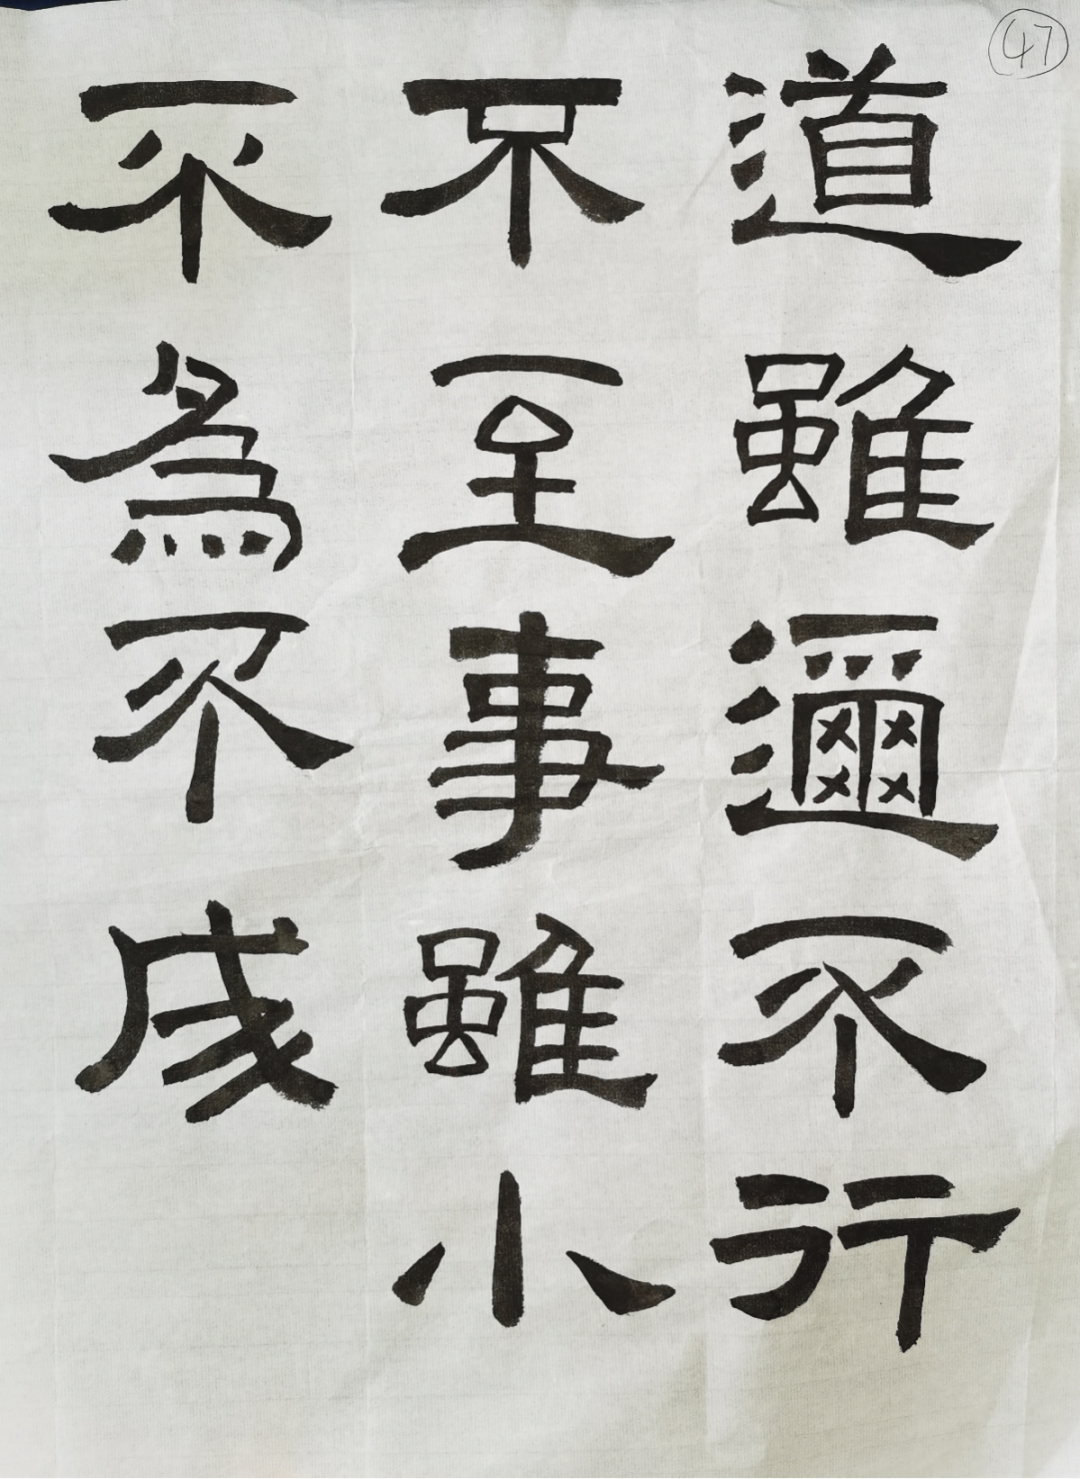 47
道雖邇不行
不至事雖小
不為不成